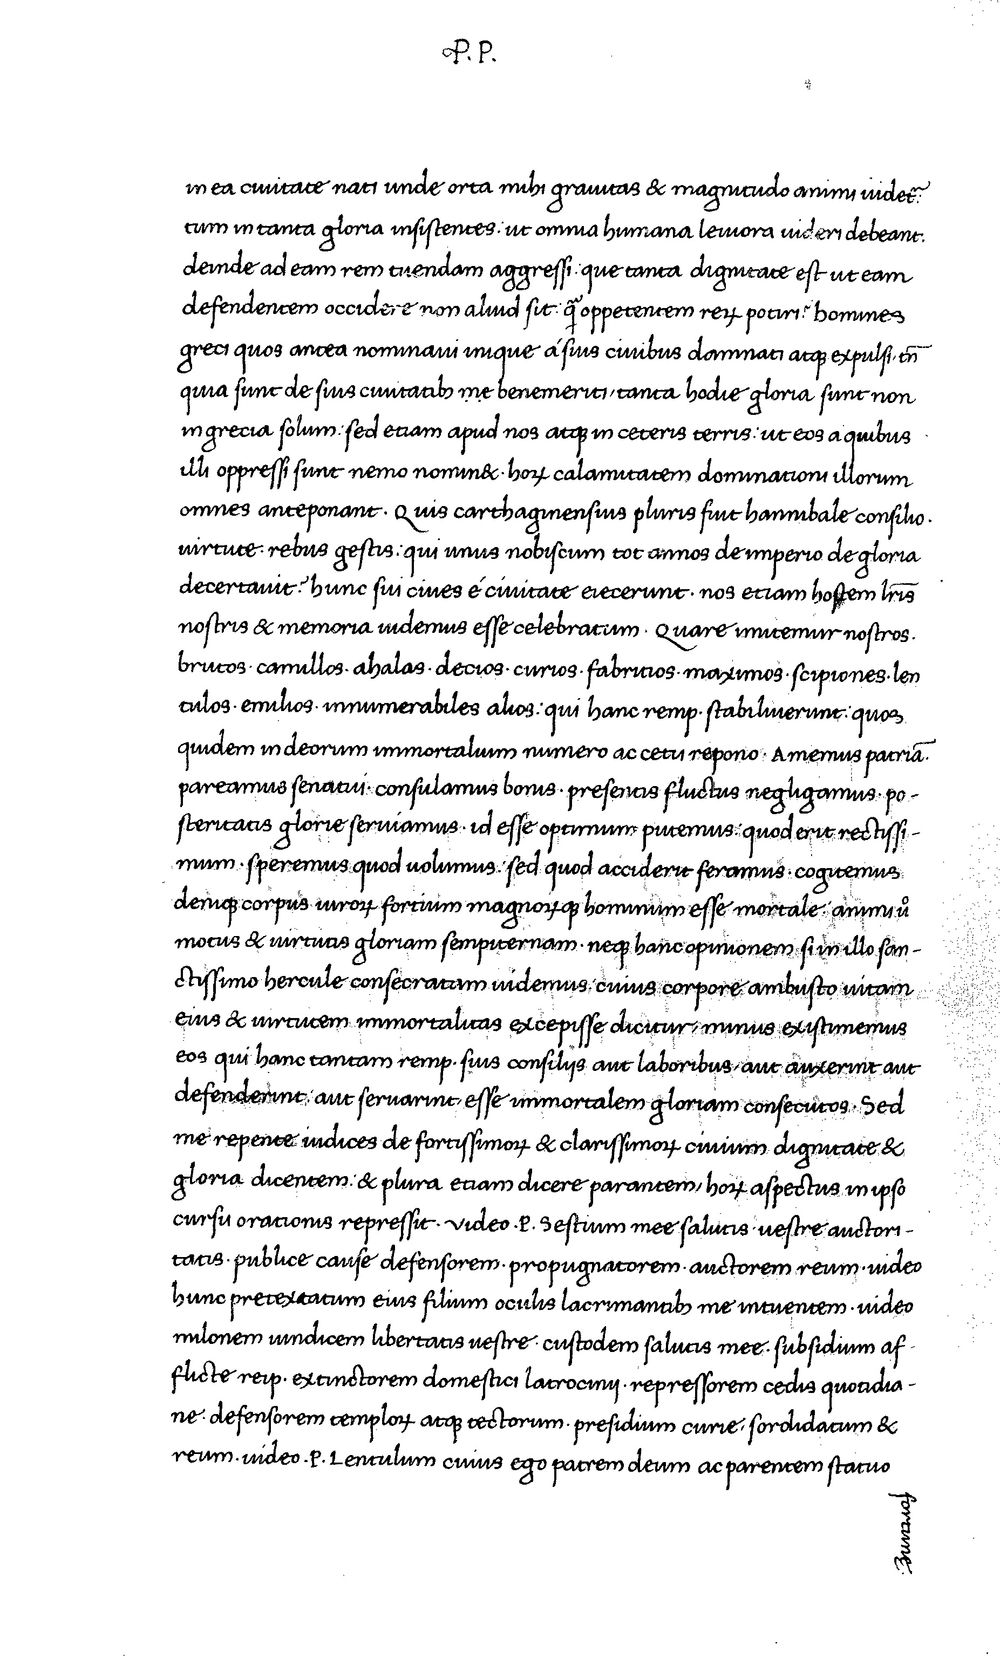 P. P.
in ea ciuitate nati unde orta mihi grauitas & magnitudo animi uidet̃?
tum in tanta gloria insistentes: ut omnia humana leuiora uideri debeant.
deinde ad eam rem tuendam aggressi: que tanta dignitate est ut eam
defendentem occidere non aliud sit: q̃ oppetentem reꝝ potiri? homines
greci quos antea nominaui inique á suis ciuibus damnati atqꝫ expulsi, tñ
quia sunt de suis ciuitatibꝫ bene meriti, tanta hodie gloria sunt non
in grecia solum: sed etiam apud nos atqꝫ in ceteris terris: ut eos a quibus
illi oppressi sunt nemo nomin&. hoꝝ calamitatem dominationi illorum
omnes anteponant. Quis carthaginensius pluris fuit hannibale consilio.
uirtute. rebus gestis: qui unus nobiscum tot annos de imperio de gloria
decertauit? hunc sui ciues é ciuitate eiecerunt. nos etiam hostem lr̃is
nostris & memoria uidemus esse celebratum. Quare imitemur nostros.
brutos. camillos. ahalas. decios. curios. fabritios. maximos. scipiones. len
tulos. emilios. innumerabiles alios: qui hanc remp. stabiliuerunt: quos
quidem in deorum immortalium numero ac cetu repono. Amemus patriã.
pareamus senatui. consulamus bonis. presentis fluctus negligamus. po-
steritatis glorie seruiamus. id esse optimum putemus: quod erit rectissi-
mum. speremus quod uolumus: sed quod acciderit feramus. cogitemus
deniqꝫ corpus uiroꝝ fortium magnoꝝqꝫ hominum esse mortale: animi uͦ
motus & uirtutis gloriam sempiternam. neqꝫ hanc opinionem si in illo san-
ctissimo hercule consecratam uidemus: cuius corpore ambusto uitam
eius & uirtutem immortalitas excepisse dicitur, minus existimemus
eos qui hanc tantam remp. suis consilijs aut laboribus, aut auxerint aut
defenderint: aut seruarint, esse immortalem gloriam consecutos. Sed
me repente iudices de fortissimoꝝ & clarissimoꝝ ciuium dignitate &
gloria dicentem: & plura etiam dicere parantem, hoꝝ aspectus in ipso
cursu orationis repressit. Video .P. Sestium mee salutis. uestre auctori-
tatis. publice cause defensorem. propugnatorem. auctorem reum. uideo
hunc pretextatum eius filium oculis lacrimantibꝫ me intuentem. uideo
milonem uindicem libertatis uestre. custodem salutis mee. subsidium af-
flicte reip. extinctorem domestici latrocinij. repressorem cedis quotidia-
ne. defensorem temploꝝ atqꝫ tectorum. presidium curie, sordidatum &
reum. uideo .P. Lentulum cuius ego patrem deum ac parentem statuo
fortune.